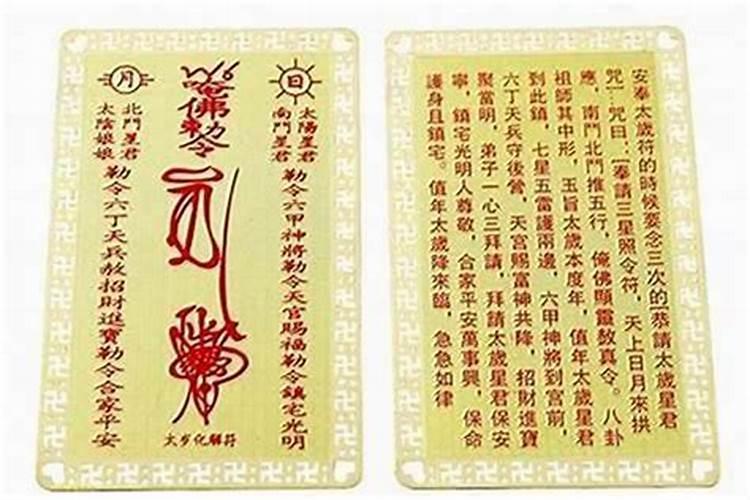 日
太陽星君
南鬥星君
勒令六甲神將勒令天官賜福勒令鎮宅光明
唵佛勅令
太岁化解符
月
北鬥星君
太陰娘娘
勒令六丁天兵敕招財進寶勒令合家平安
安奉太歲符的時候要念三次的[恭請太歲星君
咒]…咒曰:[奉請三星照令符,天上日月來拱
應,南鬥北鬥推五行,俺佛顯靈敫真令。八卦
祖師其中形,玉旨太歲本度年,值年太歲星君
到此鎮,七星五雷護兩邊,六甲神將到宮前,
六丁天兵守後營,天宮賜富神共降,招財進寶
聚當明,弟子一心三拜請,拜請太歲星君保安
寧,鎮宅光明人尊敬,合家平安萬事興,保命
護身且鎮宅。值年太歲降來臨,急急如律